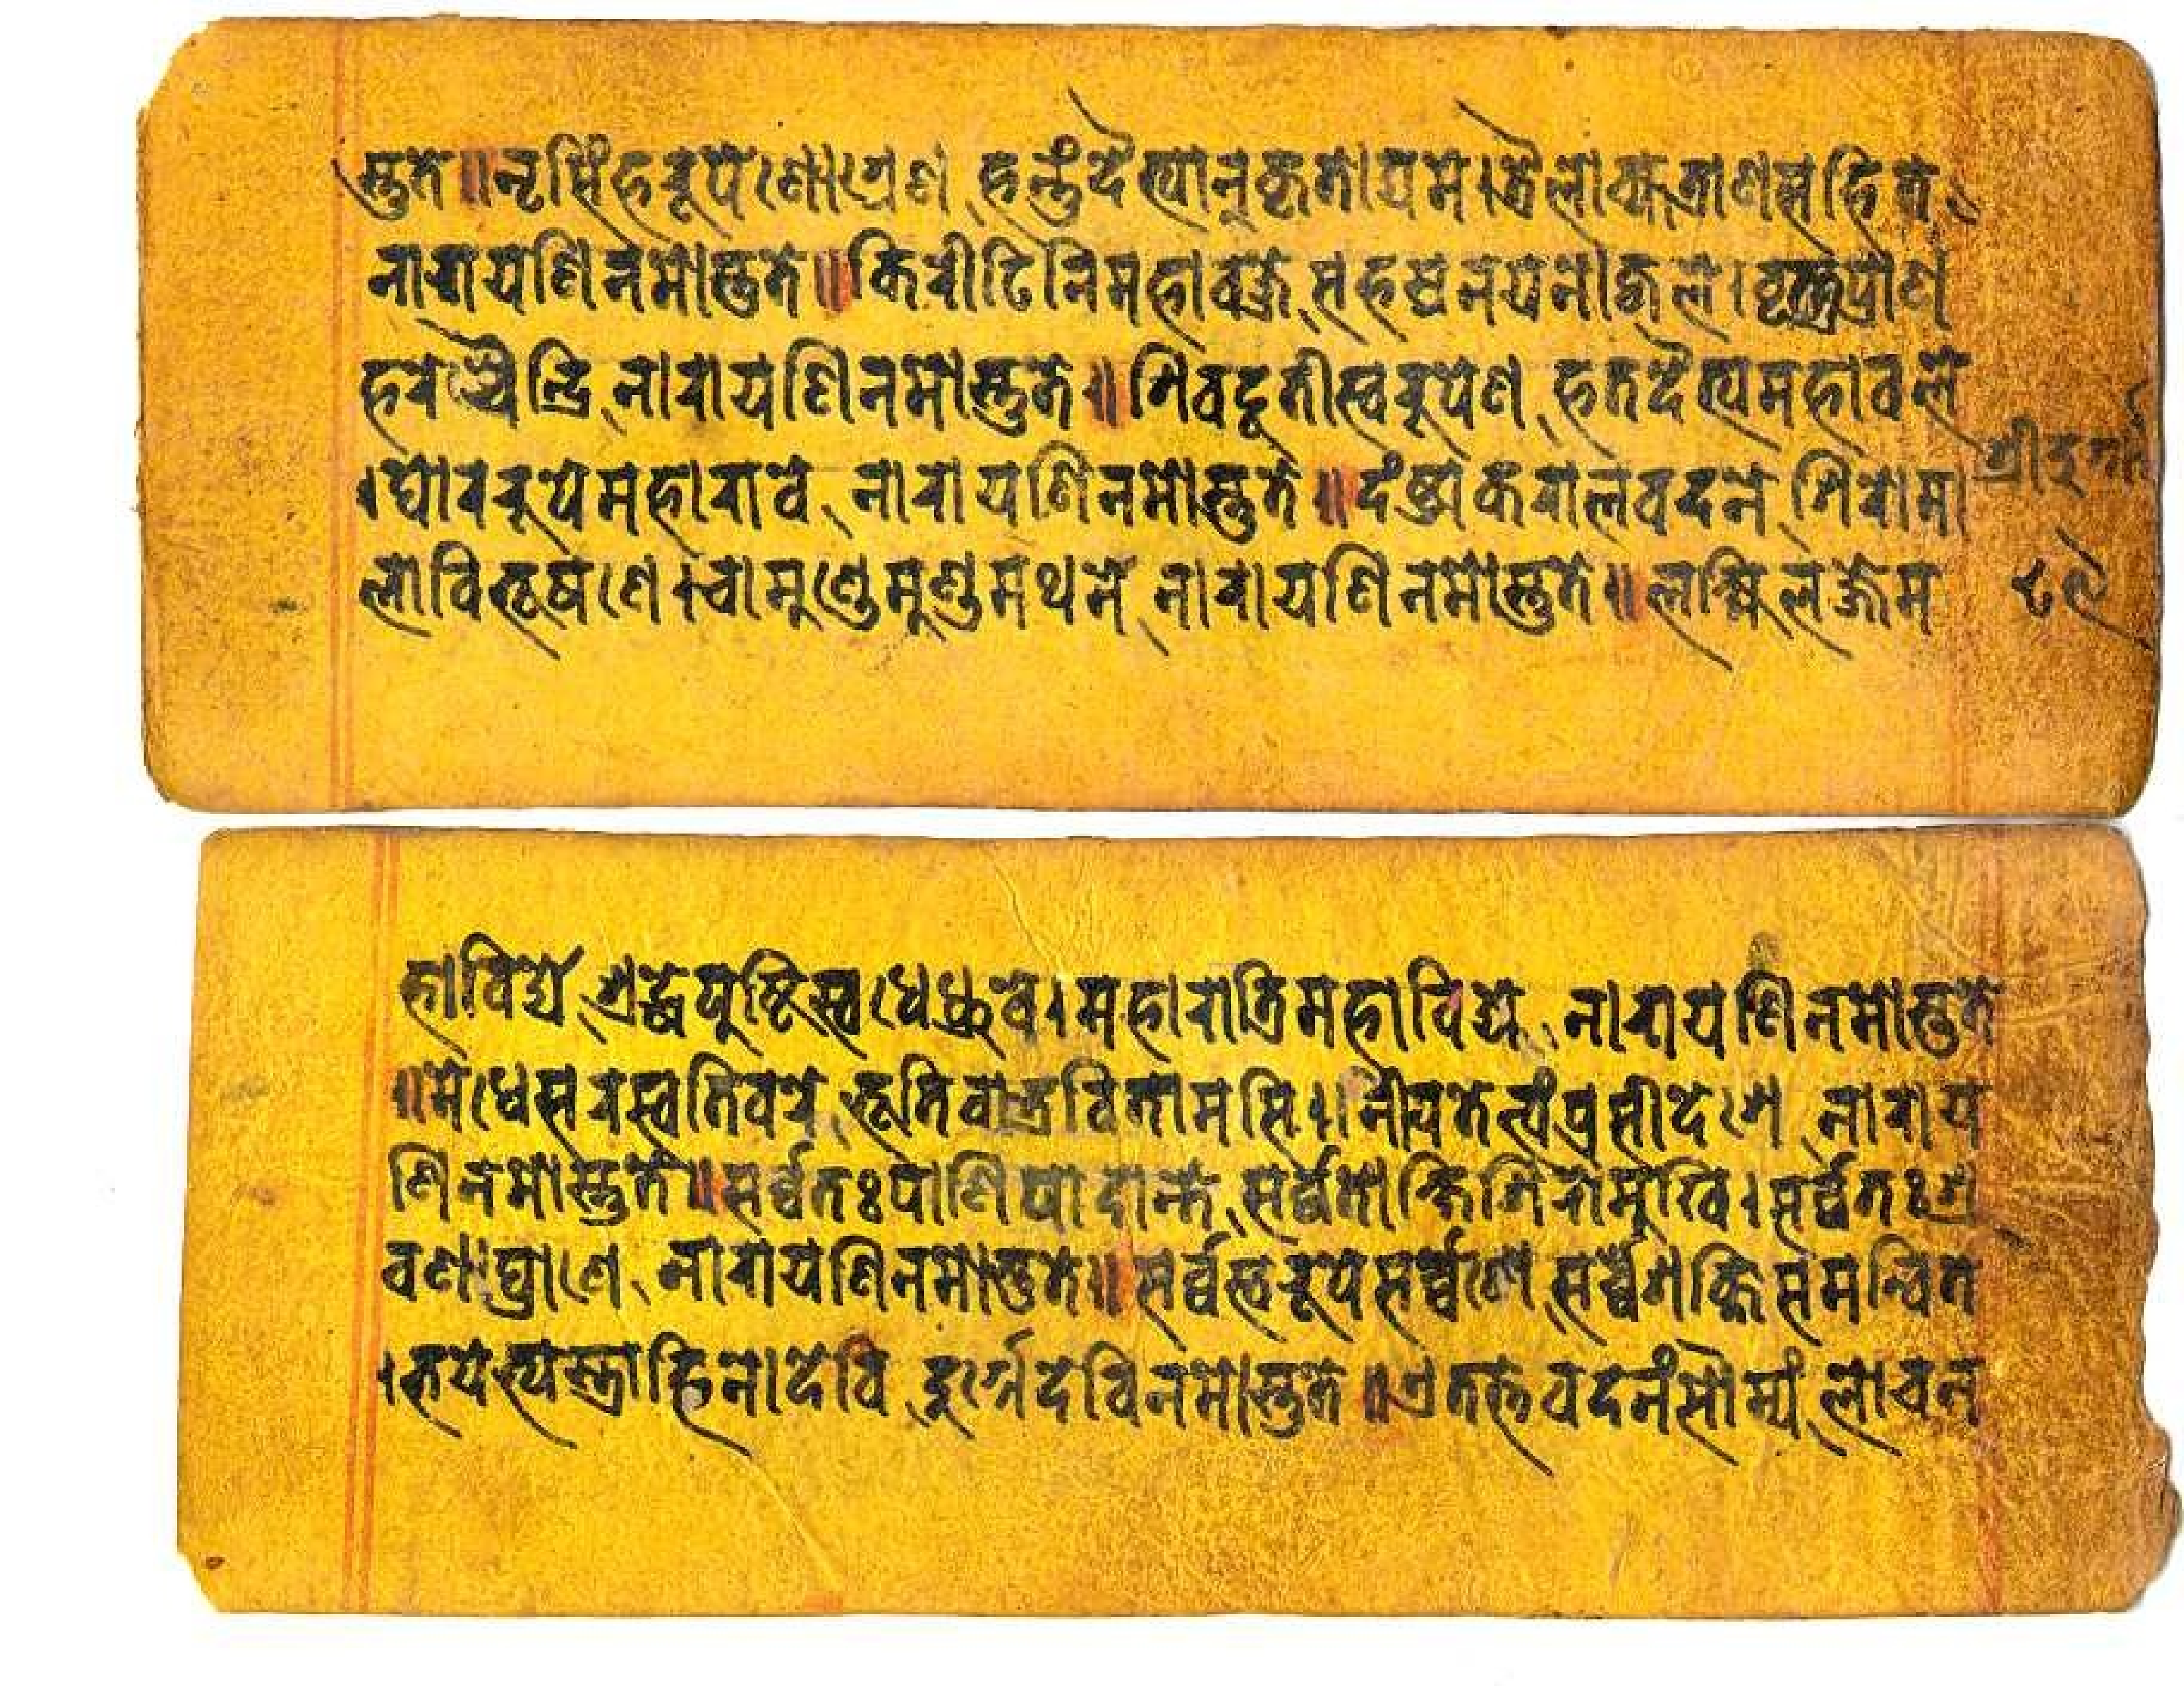 स्तुते ॥ नृसिंहरूपेणोग्रेण हन्तुं दैत्यान् कृतोद्यमे । त्रैलोक्यत्राणसहिते
नारायणि नमोस्तुते ॥ किरीटिनि महावज्रे सहस्रनयनोज्वले । वृत्रप्राण
हरे चैन्द्रि नारायणि नमोस्तुते ॥ शिवदूतीस्वरूपेण हतदैत्यमहाबले
। घोररूपे महारावे नारायणि नमोस्तुते ॥ दंष्ट्राकरालवदने शिरोमा
लाविभूषणे । चामुण्डे मुण्डमथने नारायणि नमोस्तुते ॥ लक्ष्मि लज्जे म
श्रीदुर्गा
८९
हाविद्ये श्रद्धे पुष्टि स्वधे ध्रुवे । महारात्रि महाविद्ये नारायणि नमोस्तुते
॥ मेधे सरस्वति वरे भूति वाभ्रवि तामसि । नीयते त्वं प्रसीदेशे नाराय
णि नमोस्तुते ॥ सर्व्वतः पाणिपादान्ते सर्व्वतोक्षिशिरोमुखि । सर्व्वतः श्र
वणघ्राणे नारायणि नमोस्तुते ॥ सर्व्वस्वरूपे सर्व्वेशे सर्व्वशक्तिसमन्विते
। भयेभ्यस्त्राहि नो देवि दुर्ग्गे देवि नमोस्तुते ॥ एतत्ते वदनं सौम्यं लोचन